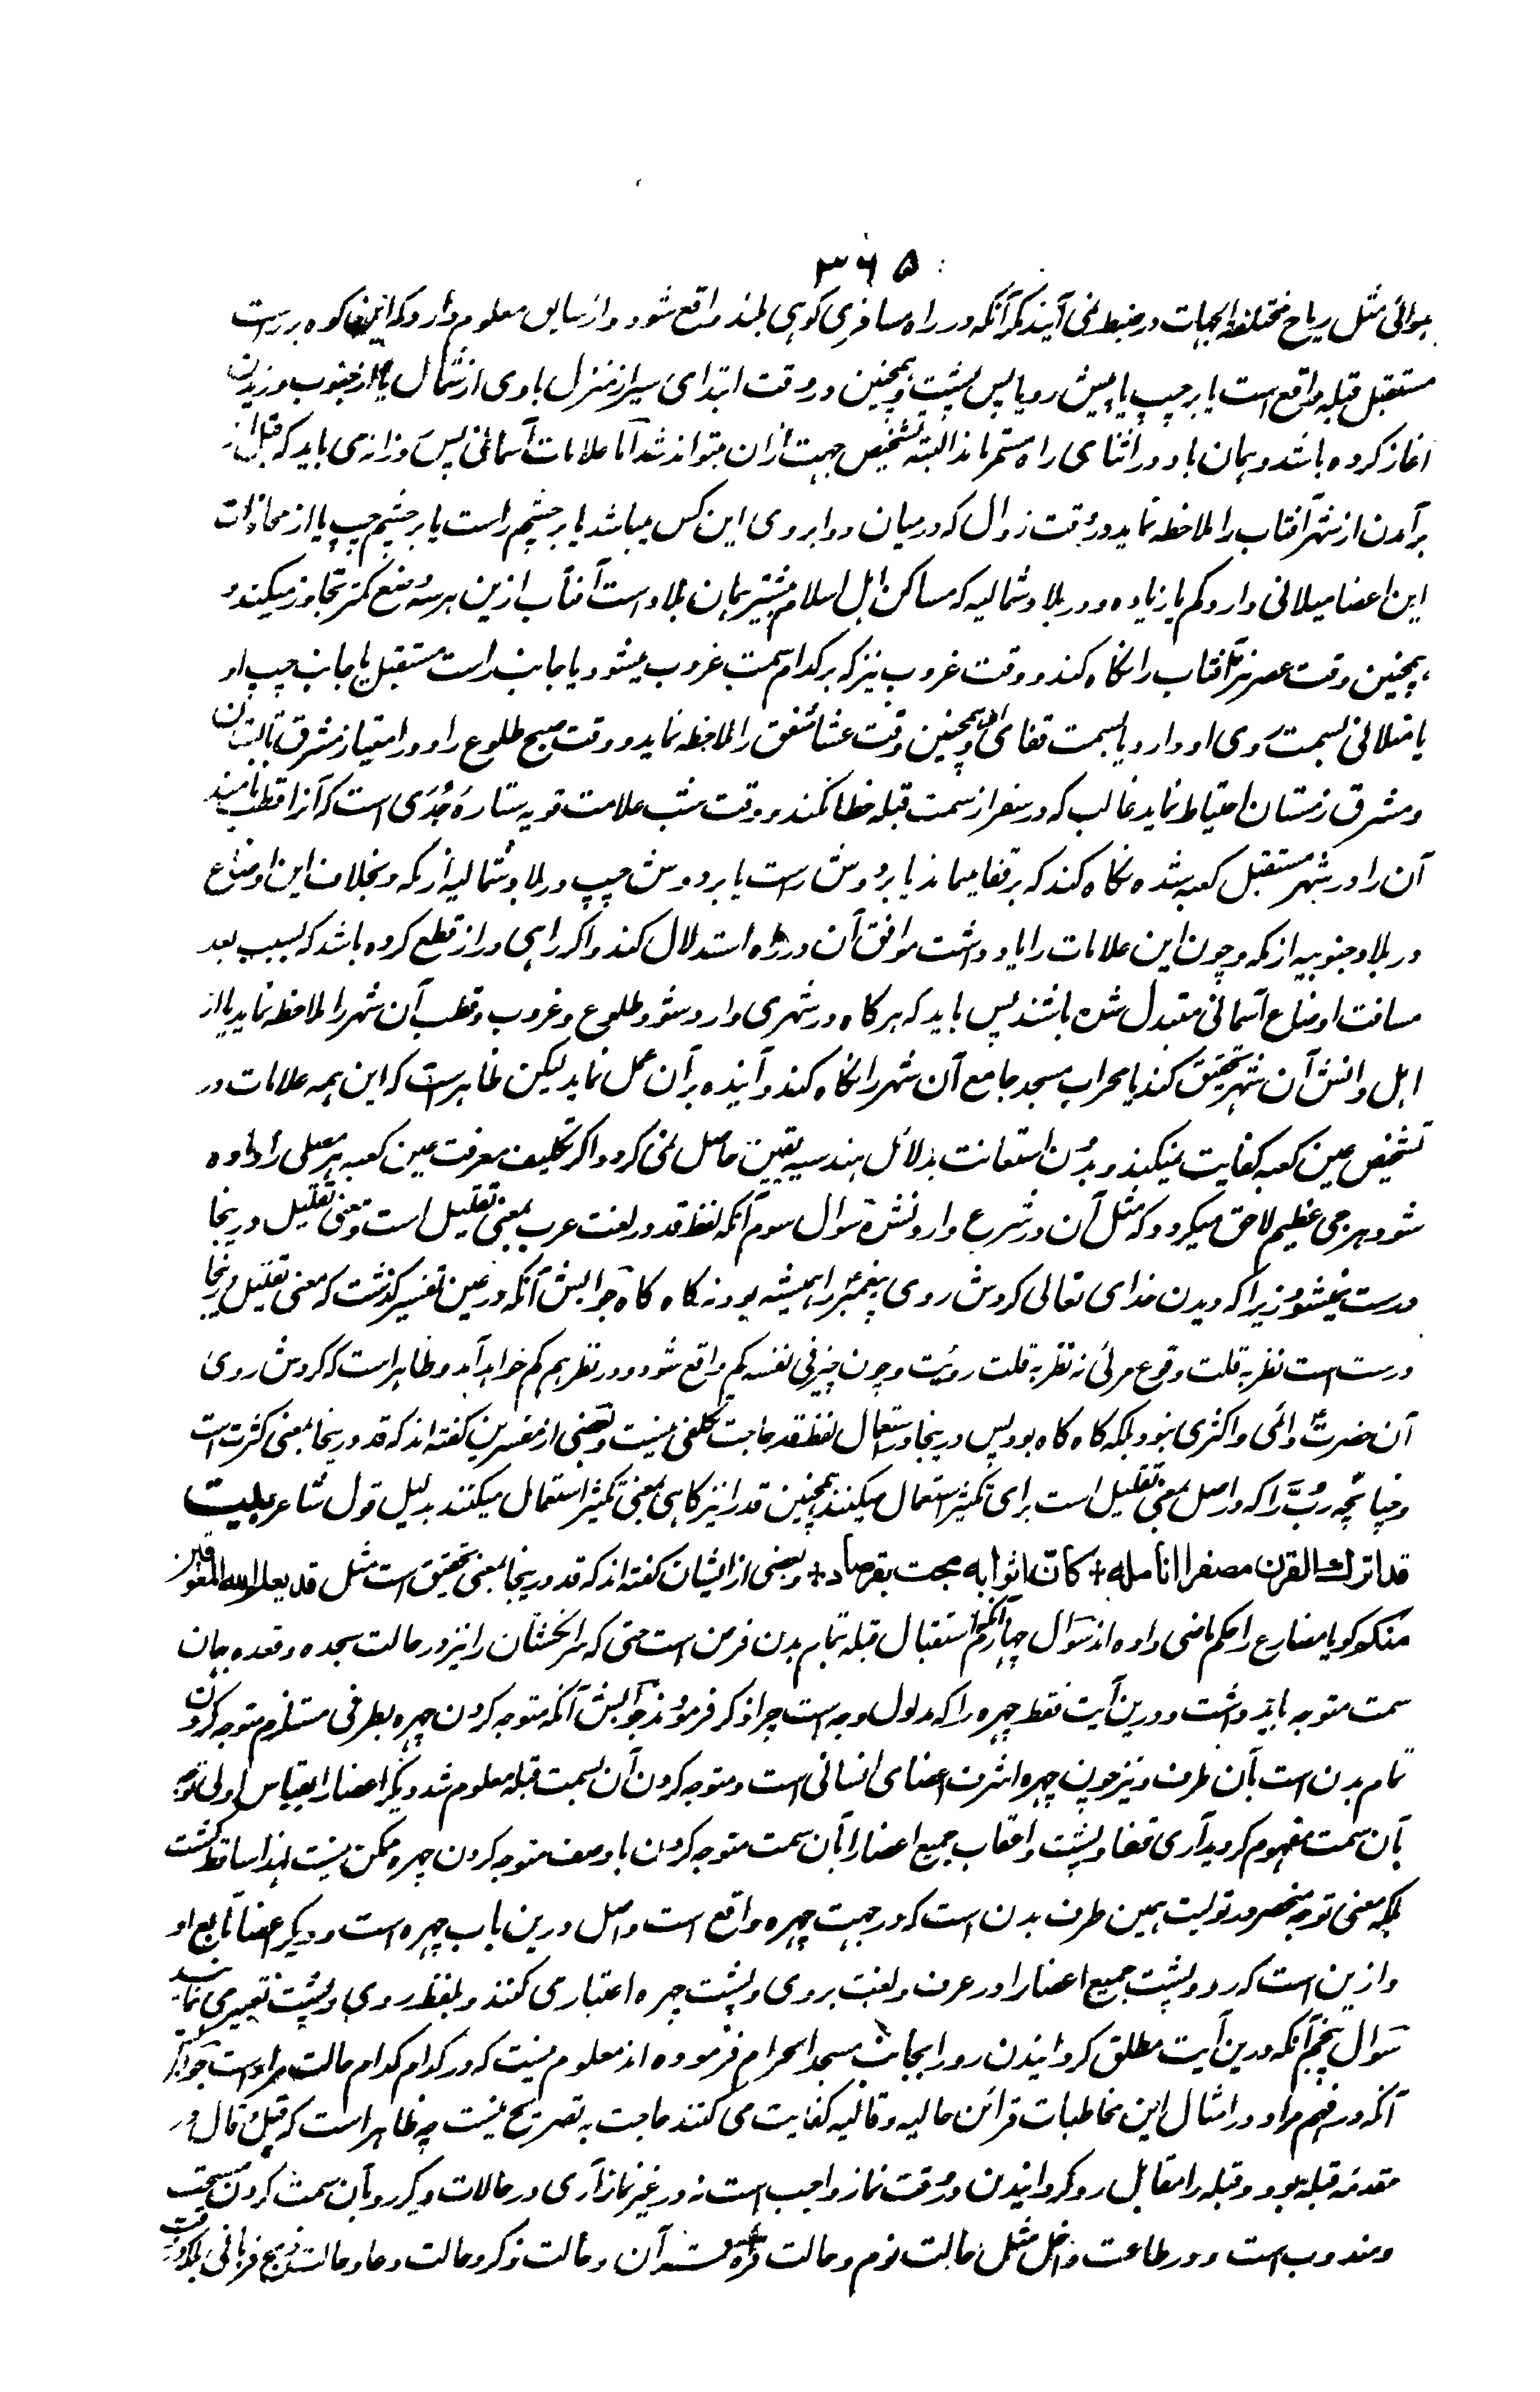 ۳۶۵
هوائی مثل ریاح مختلفة الجهات در ضبط نمی آیند مگر آنکه در راه مسافری کوهی بلند واقع شود و از سابق معلوم دارد که این کوه بر راست
مستقبل قبله واقع است یا بر چپ یا پیش رو یا پس پشت و همچنین در وقت ابتدای سیر از منزل بادی از شمال یا از جنوب وزیدن
آغاز کرده باشد و همان باد در اثنای راه مستمر ماند البته تشخیص جهت ازان میتواند شد اما علامات آسمانی پس روزانه می باید که قبل از
برآمدن از شهر آفتاب را ملاحظه نماید در وقت زوال که درمیان دو ابروی این کس میباشد یا بر چشم راست یا بر چشم چپ یا از محاذات
این اعضا میلانی دارد کم یا زیاده و در بلاد شمالیه که مساکن اهل اسلام بیشتر همان بلاد است آفتاب ازین هر سه وضع کمتر تجاوز میکند و
همچنین وقت عصر نیز آفتاب را نگاه کند و وقت غروب نیز که بر کدام سمت غروب میشود یا جانب راست مستقبل یا جانب چپ او
یا میلانی بسمت روی او دارد یا بسمت قفای او و همچنین وقت عشا شفق را ملاحظه نماید و وقت صبح طلوع را و در امتیاز مشرق تابستان
و مشرق زمستان احتیاط نماید غالب که در سفر از سمت قبله خطا نکند و وقت شب علامت قویه ستاره جُدَی است که آنرا قطب نامند
آن را در شهر مستقبل کعبه شده نگاه کند که بر قفا میماند یا بر دوش راست یا بر دوش چپ در بلاد شمالیه از مکه و بخلاف این اوضاع
در بلاد جنوبیه از مکه و چون این علامات را یاد داشت موافق آن در راه استدلال کند و اگر راهی دراز قطع کرده باشد که بسبب بعد
مسافت اوضاع آسمانی متبدل شده باشند پس باید که هرگاه در شهری وارد شود طلوع و غروب و قطب آن شهر را ملاحظه نماید یا از
اهل دانش آن شهر تحقیق کند یا محراب مسجد جامع آن شهر را نگاه کند و آینده بر آن عمل نماید لیکن ظاهر است که این همه علامات در
تشخیص عین کعبه کفایت نمیکند و بدون استعانت بدلائل هندسیه یقین حاصل نمی گردد و اگر تکلیف معرفت عین کعبه هر مصلی را داده
شود هرجی عظیم لاحق میگردد که مثل آن در شرع وارد نشده سوال سوم آنکه لفظ قد در لغت عرب بمعنی تقلیل است و معنی تقلیل درینجا
درست نمیشود زیرا که دیدن خدای تعالی گردش روی پیغمبر را همیشه بود نه گاه گاه جوابش آنکه در عین تفسیر گذشت که معنی تقلیل درینجا
درست است نظر به قلت وقوع مرئی نه نظر به قلت رویت و چون چیز فی نفسه کم واقع شود در نظر هم کم خواهد آمد و ظاهر است که گردش روی
آن حضرت دائمی و اکثری نبود بلکه گاه گاه بود پس درینجا در استعمال لفظ قد حاجت تکلفی نیست و بعضی از مفسرین گفته اند که قد درینجا بمعنی کثرت است
و چنانچه رُبَّ را که در اصل بمعنی تقلیل است برای تکثیر استعمال میکنند همچنین قد را نیز گاهی بمعنی تکثیر استعمال میکنند بدلیل قول شاعر بیت
قد اترك القرن مصفرا انامله + كانّ اثوابه مجت بفرصاد + و بعضی از ایشان گفته اند که قد درینجا بمعنی تحقیق است مثل قد یعلم الله المعوقین
منکم گویا مضارع را حکم ماضی داده اند سوال چهارم آنکه استقبال قبله بتمام بدن فرض است حتی که سر انگشتان را نیز در حالت سجده و قعده بهمان
سمت متوجه باید داشت و درین آیت فقط چهره را که مدلول وجه است چرا ذکر فرمودند جوابش آنکه متوجه کردن چهره بطرفی مستلزم متوجه کردن
تمام بدن است بآن طرف و نیز چون چهره اشرف اعضای انسانی است و متوجه کردن آن بسمت قبله معلوم شد دیگر اعضا را بقیاس اولی توجه
بآن سمت مفهوم گردید آری قفا و پشت و اعقاب جمیع اعضا را بآن سمت متوجه کردن باوصف متوجه کردن چهره ممکن نیست لهذا ساقط گشت
بلکه معنی توجه منحصر در تولیت همین طرف بدن است که در جهت چهره واقع است و اصل درین باب چهره است و دیگر اعضا تابع او
و ازین است که رو و پشت جمیع اعضا را در عرف و لغت بروی و پشت چهره اعتبار می کنند و بلفظ روی و پشت تعبیر می نمایند
سوال پنجم آنکه درین آیت مطلق گردانیدن رو را بجانب مسجد الحرام فرموده اند معلوم نیست که در کدام کدام حالت مراد است جوابش
آنکه در فهم مراد در امثال این مخاطبات قرائن حالیه و قالیه کفایت می کنند حاجت به تصریح نیست چه ظاهر است که قیل و قال در
مقدمه قبله بود و قبله را مقابل رو گردانیدن در وقت نماز واجب است نه در غیر نماز آری در حالات دیگر رو بآن سمت کردن مستحب
و مندوب است و در طاعت داخل مثل حالت نوم و حالت قرءة قرآن و حالت ذکر و حالت دعا و حالت ذبح قربانی بلکه در